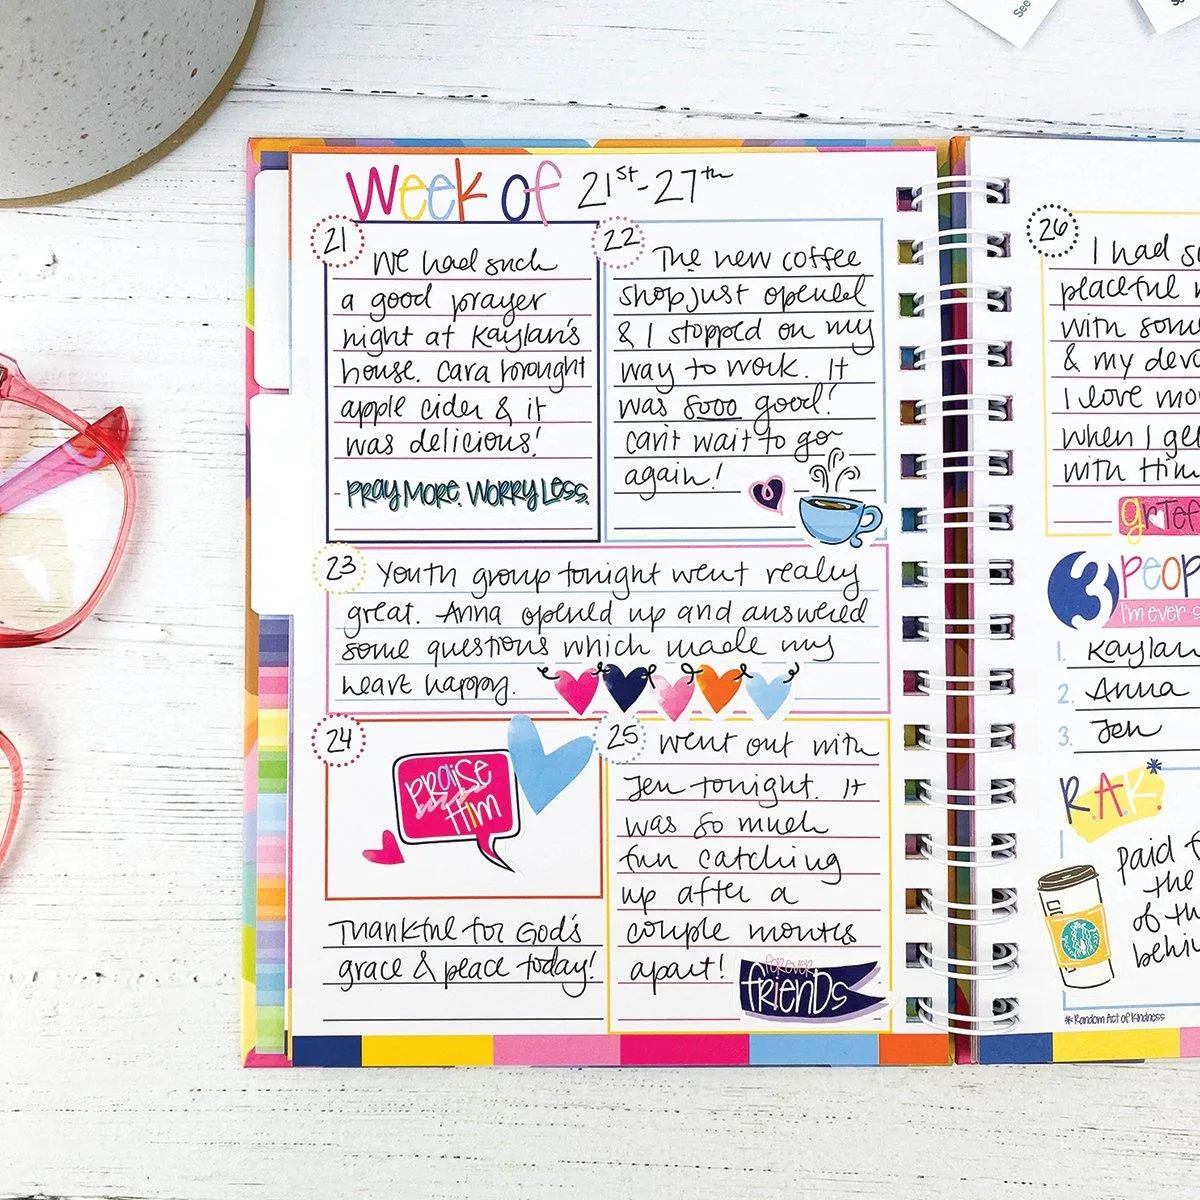 See
Week of 21st-27th
21
We had such
a good prayer
night at Kaylan's
house. Cara brought
apple cider & it
was delicious!
- PRAY MORE. WORRY LESS.
22
The new coffee
shop just opened
& I stopped on my
way to work. It
was sooo good!
can't wait to go
again!
23
Youth group tonight went really
great. Anna opened up and answered
some questions which made my
heart happy.
24
PRaiSe
Him
Thankful for God's
grace & peace today!
25
went out with
Jen tonight. It
was so much
fun catching
up after a
couple months
apart!
FOREVER
friENDS
26
I had s
peaceful
with som
& my devo
I love mo
when I ge
with Him
grTef
3 PEOP
I'm ever-g
1. Kaylan
2. Anna
3. Jen
R.A.K.*
paid f
the
of th
behin
*Random Act of Kindness